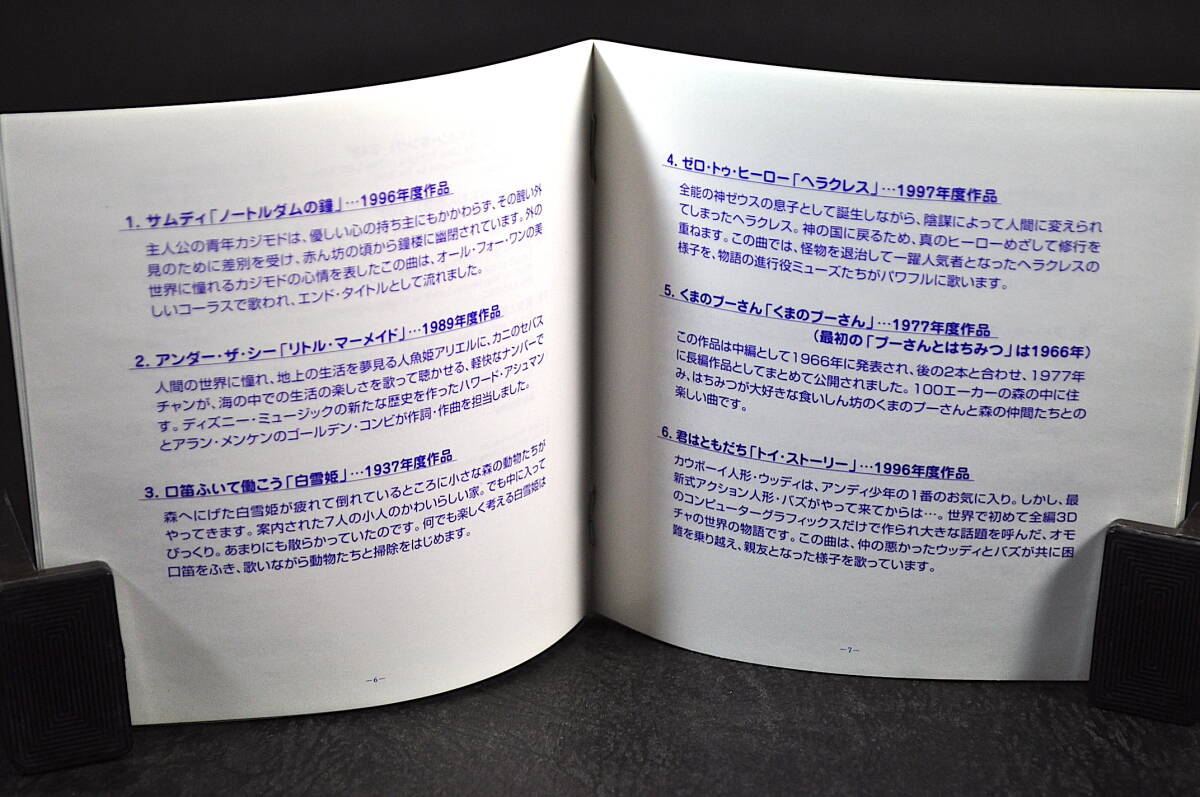 1. サムディ「ノートルダムの鐘」…1996年度作品
主人公の青年カジモドは、優しい心の持ち主にもかかわらず、その醜い外
見のために差別を受け、赤ん坊の頃から鐘楼に幽閉されています。外の
世界に憧れるカジモドの心情を表したこの曲は、オール・フォー・ワンの美
しいコーラスで歌われ、エンド・タイトルとして流れました。
2. アンダー・ザ・シー「リトル・マーメイド」…1989年度作品
人間の世界に憧れ、地上の生活を夢見る人魚姫アリエルに、カニのセバス
チャンが、海の中での生活の楽しさを歌って聴かせる、軽快なナンバーで
す。ディズニー・ミュージックの新たな歴史を作ったハワード・アシュマン
とアラン・メンケンのゴールデン・コンビが作詞・作曲を担当しました。
3. 口笛ふいて働こう「白雪姫」…1937年度作品
森へにげた白雪姫が疲れて倒れているところに小さな森の動物たちが
やってきます。案内された7人の小人のかわいらしい家。でも中に入って
びっくり。あまりにも散らかっていたのです。何でも楽しく考える白雪姫は
口笛をふき、歌いながら動物たちと掃除をはじめます。
−6−
4. ゼロ・トゥ・ヒーロー「ヘラクレス」…1997年度作品
全能の神ゼウスの息子として誕生しながら、陰謀によって人間に変えられ
てしまったヘラクレス。神の国に戻るため、真のヒーローめざして修行を
重ねます。この曲では、怪物を退治して一躍人気者となったヘラクレスの
様子を、物語の進行役ミューズたちがパワフルに歌います。
5. くまのプーさん「くまのプーさん」…1977年度作品
(最初の「プーさんとはちみつ」は1966年)
この作品は中編として1966年に発表され、後の2本と合わせ、1977年
に長編作品としてまとめて公開されました。100エーカーの森の中に住
み、はちみつが大好きな食いしん坊のくまのプーさんと森の仲間たちとの
楽しい曲です。
6. 君はともだち「トイ・ストーリー」…1996年度作品
カウボーイ人形・ウッディは、アンディ少年の1番のお気に入り。しかし、最
新式アクション人形・バズがやって来てからは…。世界で初めて全編3D
のコンピューターグラフィックスだけで作られ大きな話題を呼んだ、オモ
チャの世界の物語です。この曲は、仲の悪かったウッディとバズが共に困
難を乗り越え、親友となった様子を歌っています。
−7−